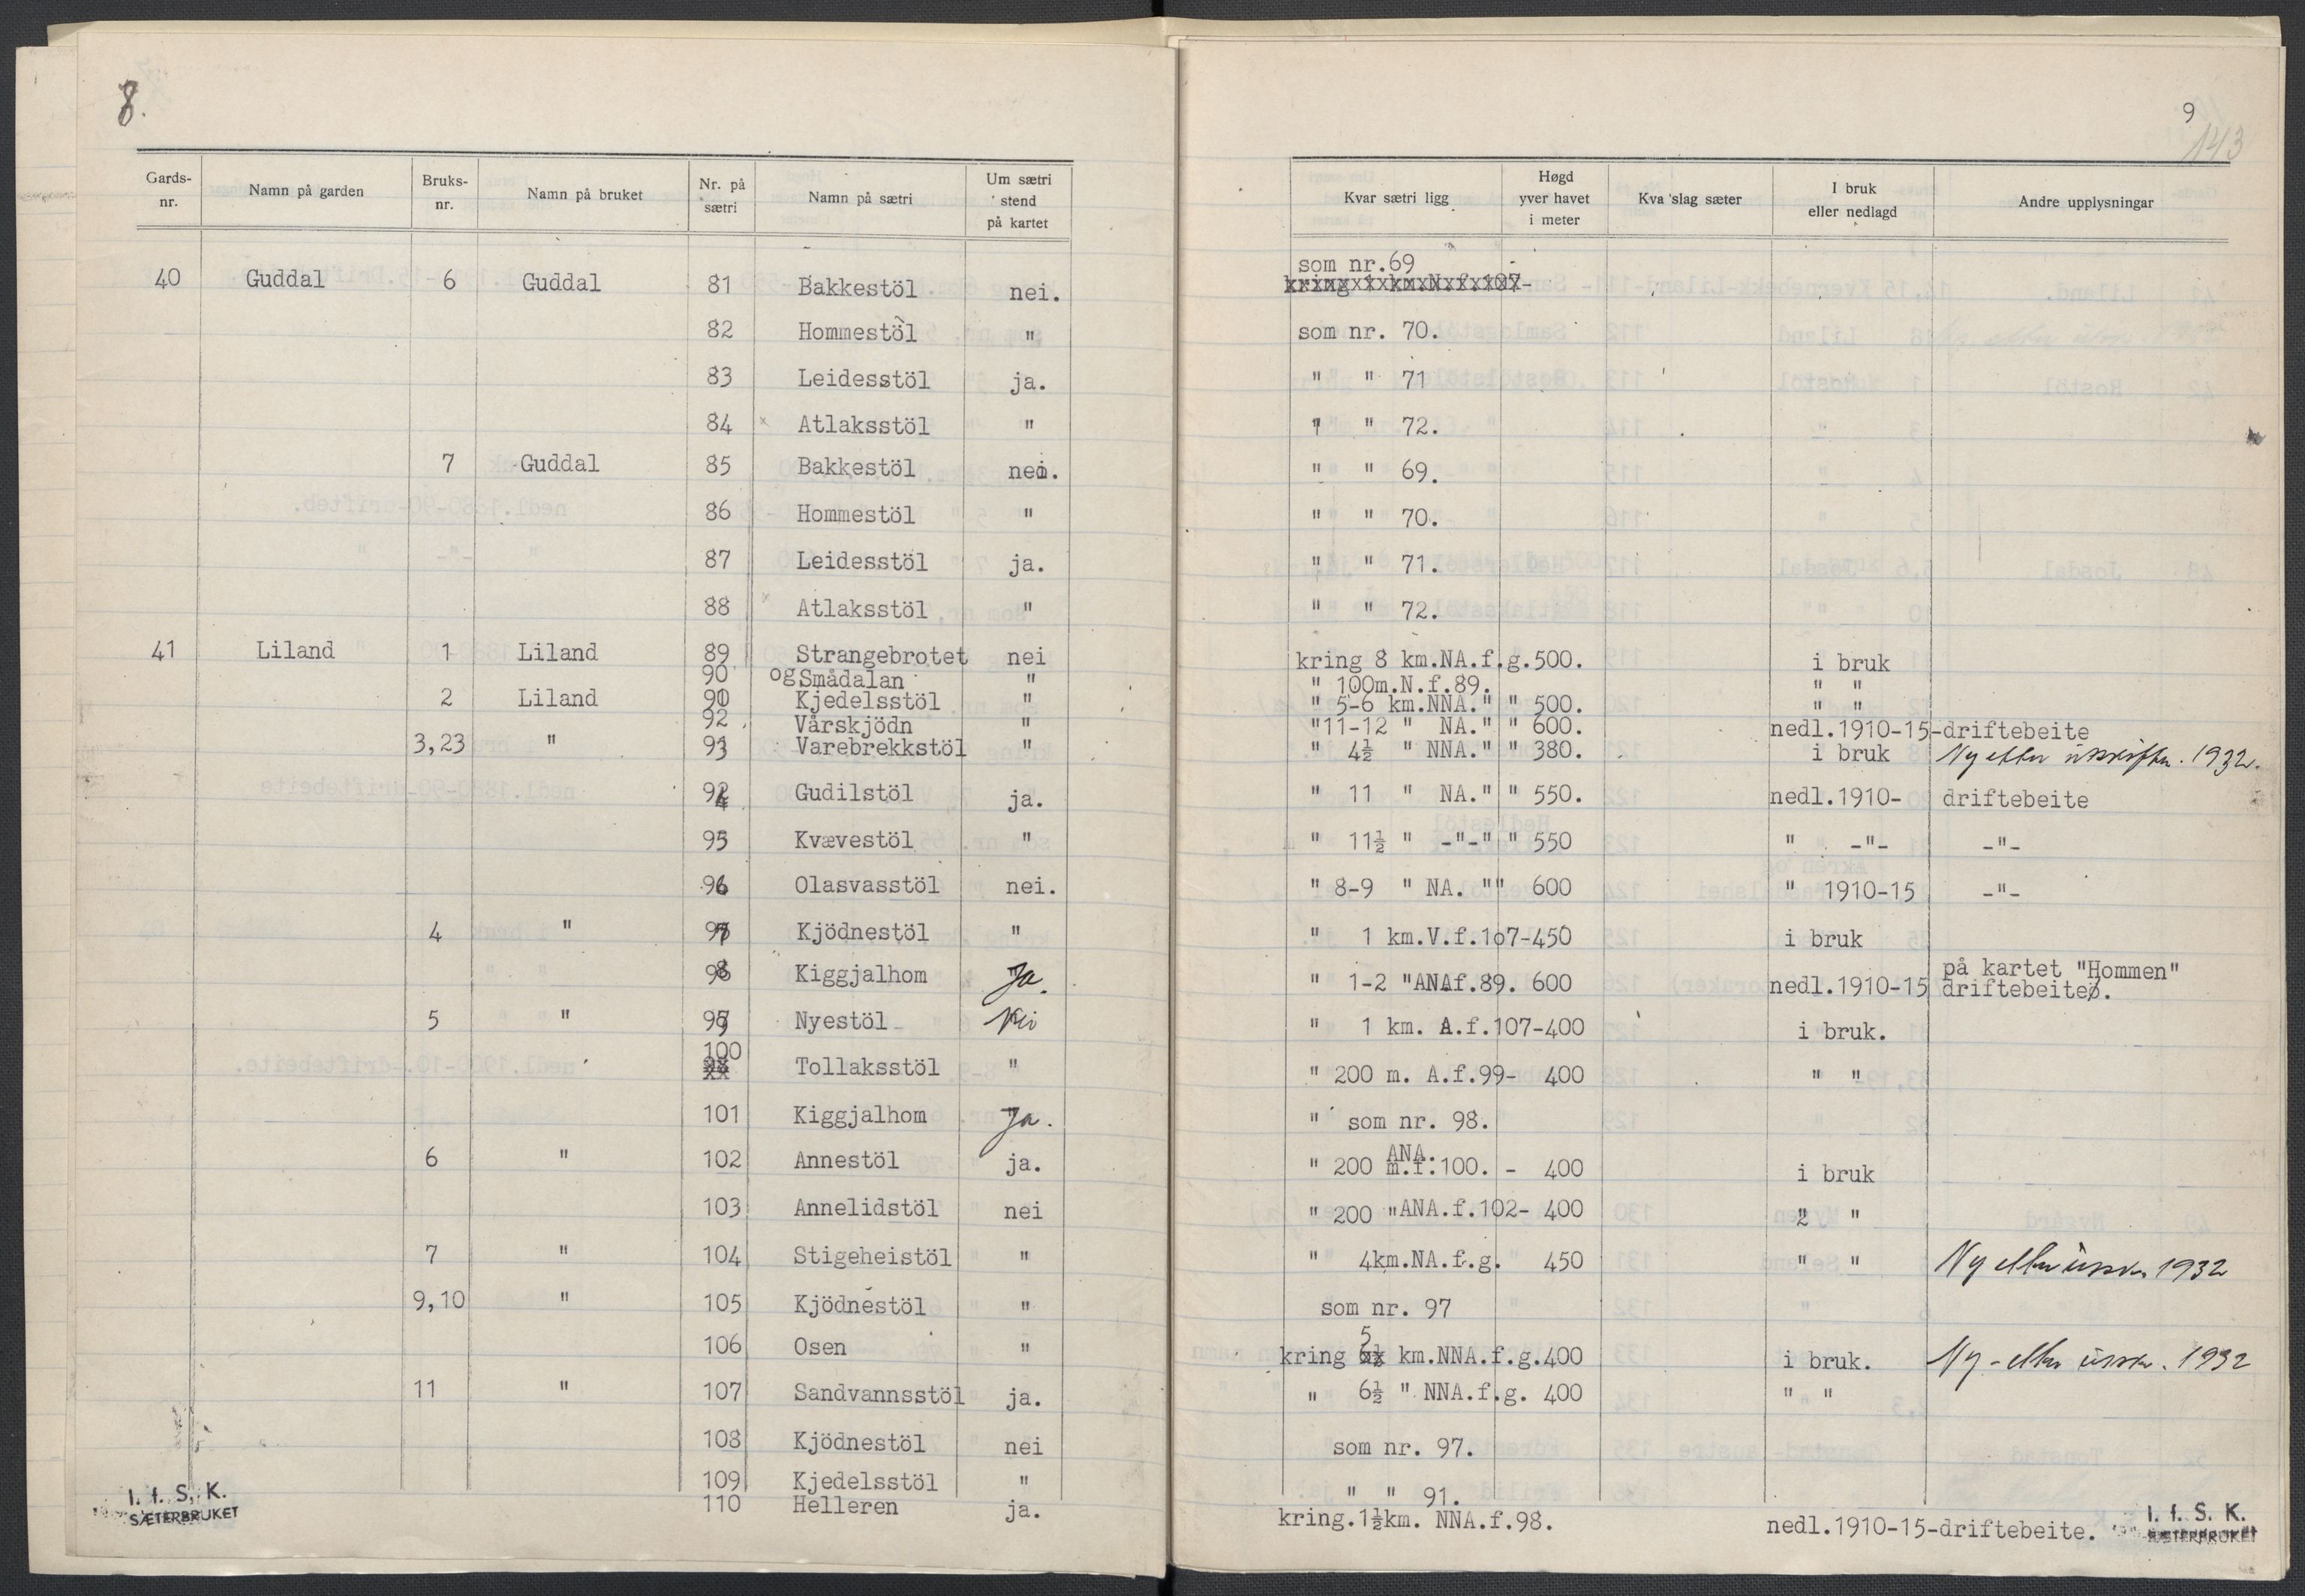 8.
9
143
Gards-nr. Namn på garden Bruks-nr. Namn på bruket Nr. på sætri Namn på sætri Um sætri stend på kartet Kvar sætri ligg Høgd yver havet i meter Kva slag sæter I bruk eller nedlagd Andre upplysningar
40 Guddal 6 Guddal 81 Bakkestöl nei. som nr.69
82 Hommestöl " som nr. 70.
83 Leidesstöl ja. " " 71
84 Atlaksstöl " " " 72.
7 Guddal 85 Bakkestöl nei. " " 69.
86 Hommestöl " " " 70.
87 Leidesstöl ja. " " 71.
88 Atlaksstöl " " " 72.
41 Liland 1 Liland 89 Strangebrotet nei kring 8 km.NA.f.g.500. i bruk
90 og Smådalan " " 100m.N.f.89. " "
2 Liland 91 Kjedelsstöl " " 5-6 km.NNA." " 500. " "
92 Vårskjödn " "11-12 " NA." " 600. nedl.1910-15-driftebeite
3,23 " 93 Varebrekkstöl " " 4½ " NNA." " 380. i bruk Ny etter utskiftn. 1932.
94 Gudilstöl ja. " 11 " NA." " 550. nedl.1910- driftebeite
95 Kvævestöl " " 11½ " -"-" " 550 " -"- -"-
96 Olasvasstöl nei. " 8-9 " NA. "" 600 " 1910-15 -"-
4 " 97 Kjödnestöl " " 1 km.V.f.107-450 i bruk
98 Kiggjalhom Ja. " 1-2 "ANAf.89. 600 nedl.1910-15 på kartet "Hommen" driftebeite.
5 " 99 Nyestöl Nei " 1 km. A.f.107-400 i bruk.
100 Tollaksstöl " " 200 m. A.f.99- 400 " "
101 Kiggjalhom Ja. " som nr. 98.
6 " 102 Annestöl ja. " 200 m.ANA.f.100. - 400 i bruk
103 Annelidstöl nei " 200 "ANA.f.102- 400 " "
7 " 104 Stigeheistöl " " 4km.NA.f.g. 450 " " Ny etter utskr 1932
9,10 " 105 Kjödnestöl " som nr. 97
106 Osen " kring 5 km.NNA.f.g.400 i bruk. Ny - etter utskr. 1932
11 " 107 Sandvannsstöl ja. " 6½ " NNA.f.g. 400 " "
108 Kjödnestöl nei som nr. 97.
109 Kjedelsstöl " " " 91.
110 Helleren ja. kring.1½km. NNA.f.98. nedl.1910-15-driftebeite.
I. f. S. K.
SÆTERBRUKET
I. f. S. K.
SÆTERBRUKET